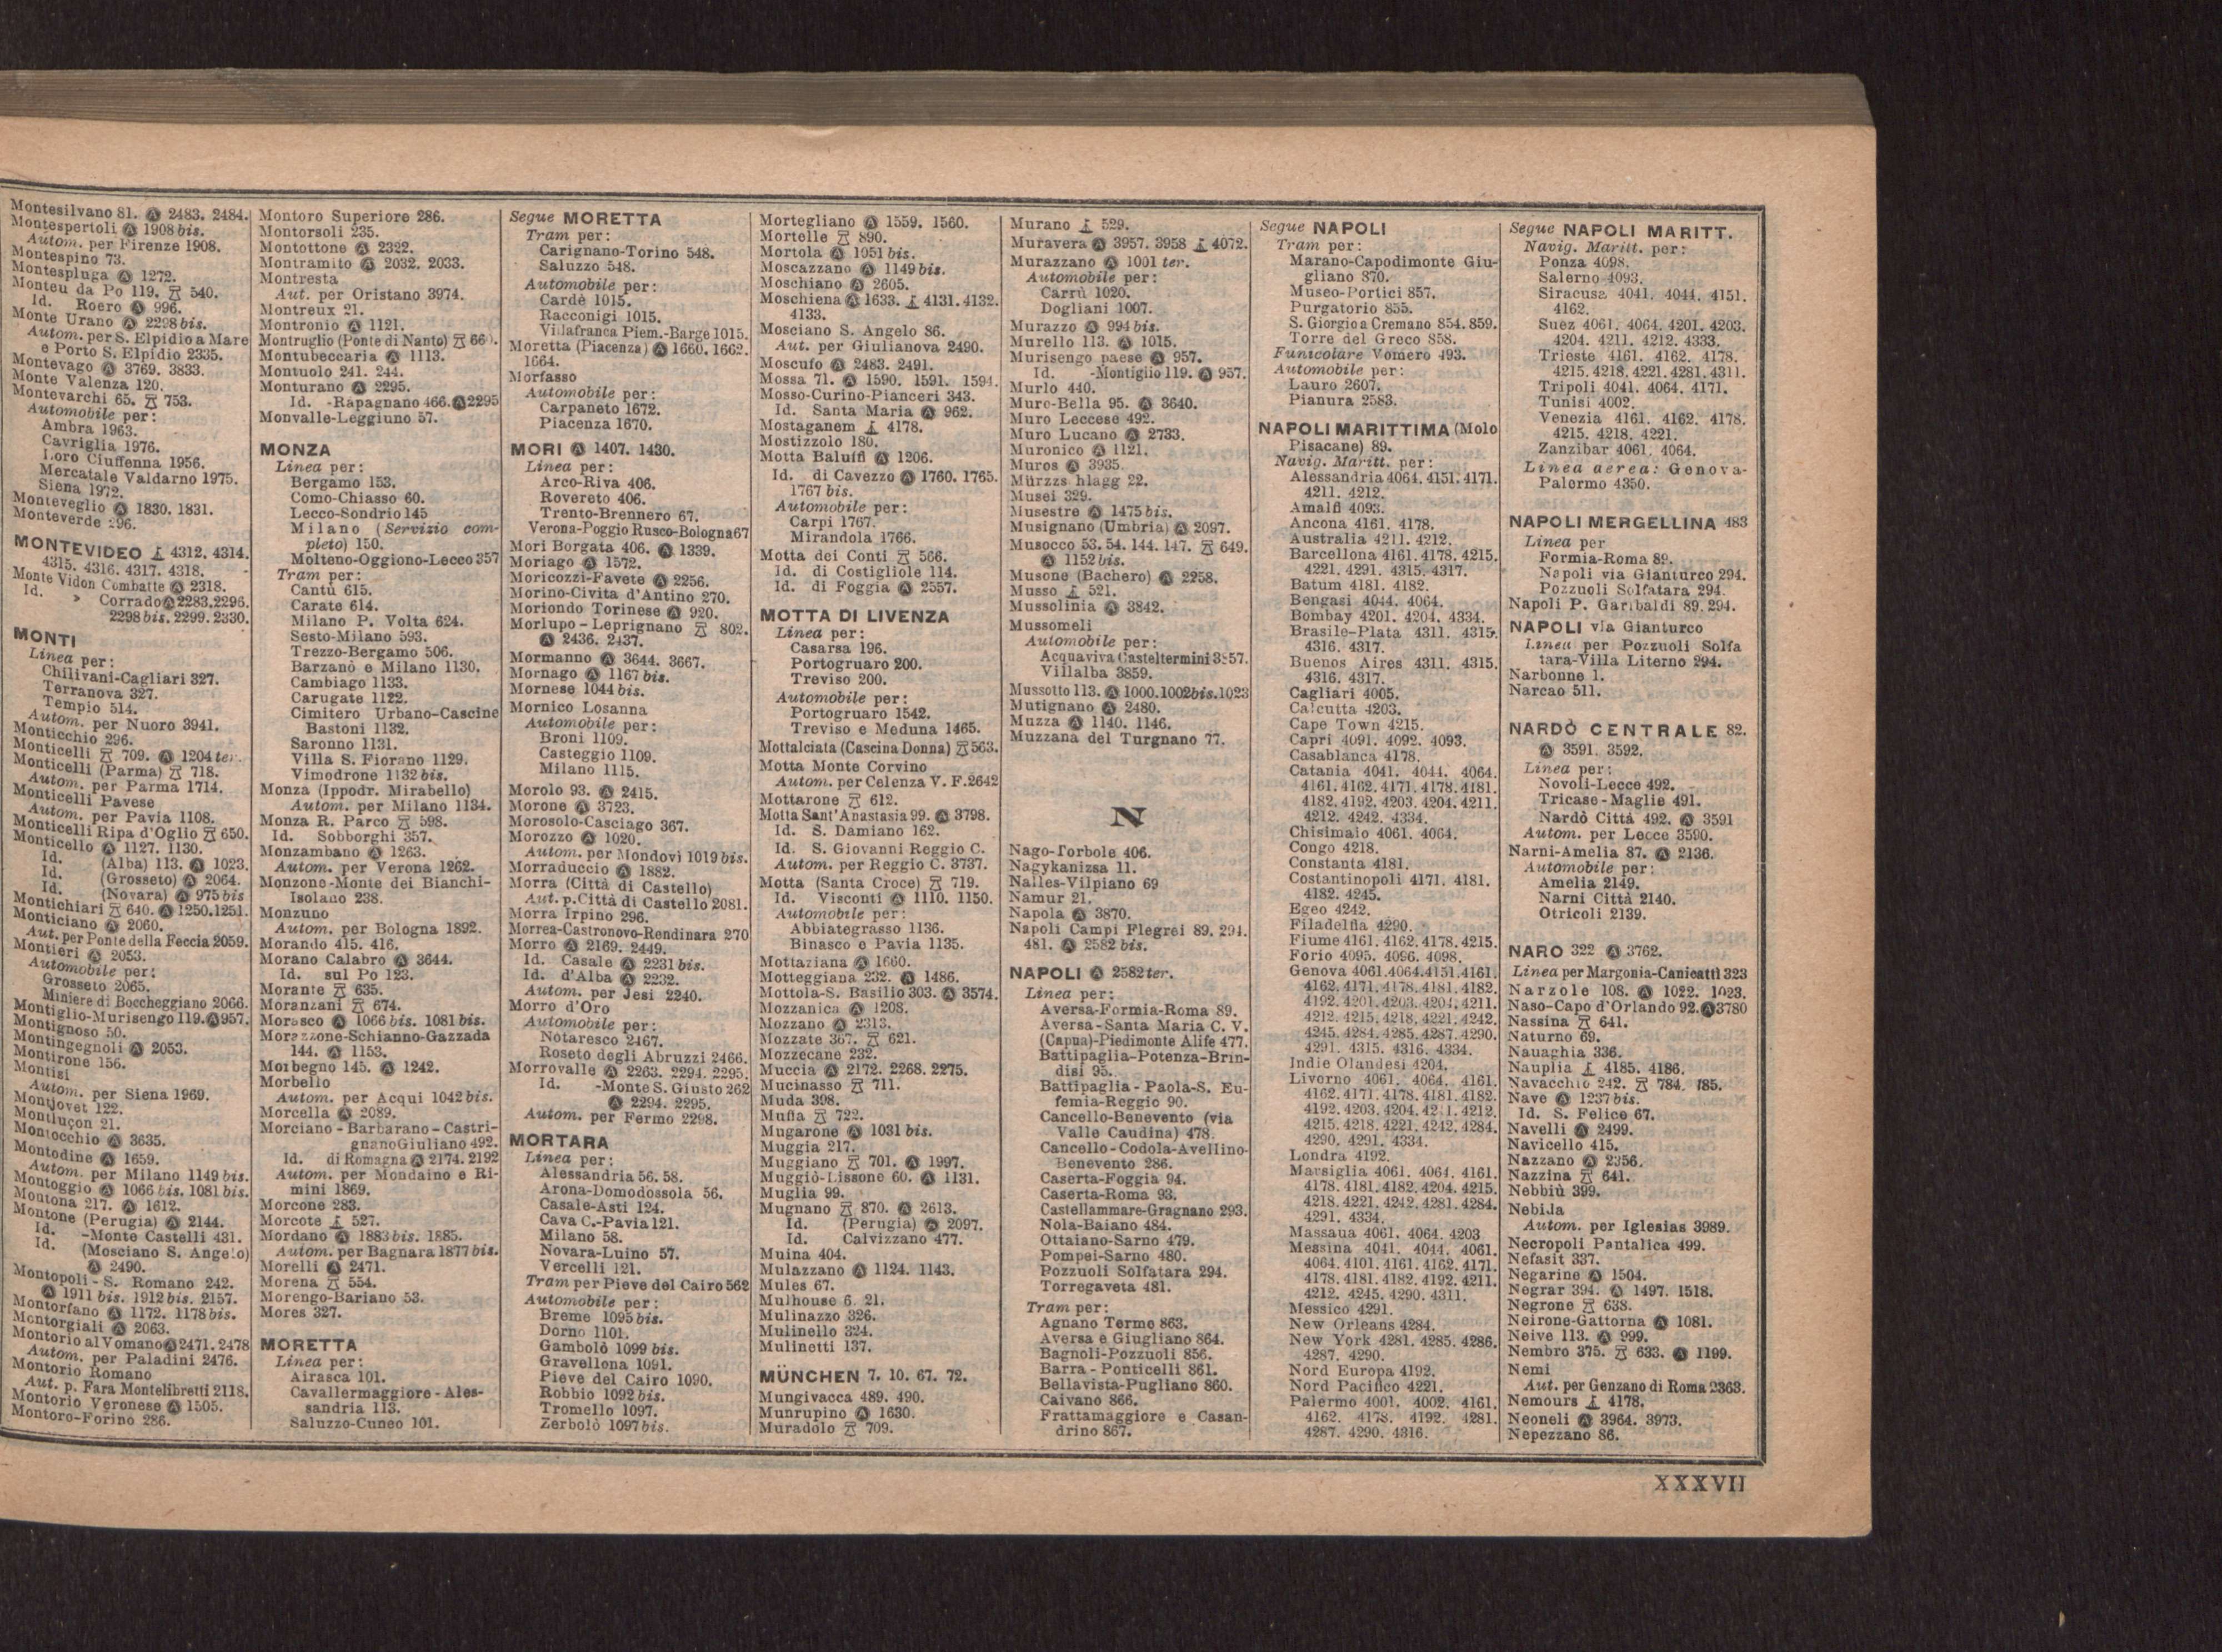 Montesilvano 81. Ⓐ 2483. 2484.
Montespertoli Ⓐ 1908 bis.
Autom. per Firenze 1908.
Montespino 73.
Montespluga Ⓐ 1272.
Monteu da Po 119. 540.
Id. Roero Ⓐ 996.
Monte Urano Ⓐ 2298 bis.
Autom. per S. Elpidio a Mare
e Porto S. Elpidio 2335.
Montevago Ⓐ 3769. 3833.
Monte Valenza 120.
Montevarchi 65. 753.
Automobile per:
Ambra 1963.
Cavriglia 1976.
Loro Ciuffenna 1956.
Mercatale Valdarno 1975.
Siena 1972.
Monteveglio Ⓐ 1830. 1831.
Monteverde 296.
MONTEVIDEO 4312. 4314.
4315. 4316. 4317. 4318.
Monte Vidon Combatte Ⓐ 2318.
Id. » Corrado Ⓐ 2283. 2296.
2298 bis. 2299. 2330.
MONTI
Linea per:
Chilivani-Cagliari 327.
Terranova 327.
Tempio 514.
Autom. per Nuoro 3941.
Monticchio 296.
Monticelli 709. Ⓐ 1204 ter.
Monticelli (Parma) 718.
Autom. per Parma 1714.
Monticelli Pavese
Autom. per Pavia 1108.
Monticelli Ripa d'Oglio 650.
Monticello Ⓐ 1127. 1130.
Id. (Alba) 113. Ⓐ 1023.
Id. (Grosseto) Ⓐ 2064.
Id. (Novara) Ⓐ 975 bis
Montichiari 640. Ⓐ 1250. 1251.
Monticiano Ⓐ 2060.
Aut. per Ponte della Feccia 2059.
Montieri Ⓐ 2053.
Automobile per:
Grosseto 2065.
Miniere di Boccheggiano 2066.
Montiglio-Murisengo 119. Ⓐ 957.
Montignoso 50.
Montingegnoli Ⓐ 2053.
Montirone 156.
Montisi
Autom. per Siena 1969.
Montjovet 122.
Montluçon 21.
Montocchio Ⓐ 3635.
Montodine Ⓐ 1659.
Autom. per Milano 1149 bis.
Montoggio Ⓐ 1066 bis. 1081 bis.
Montona 217. Ⓐ 1612.
Montone (Perugia) Ⓐ 2144.
Id. -Monte Castelli 431.
Id. (Mosciano S. Angelo)
Ⓐ 2490.
Montopoli - S. Romano 242.
Ⓐ 1911 bis. 1912 bis. 2157.
Montorfano Ⓐ 1172. 1178 bis.
Montorgiali Ⓐ 2063.
Montorio al Vomano Ⓐ 2471. 2478
Autom. per Paladini 2476.
Montorio Romano
Aut. p. Fara Montelibretti 2118.
Montorio Veronese Ⓐ 1505.
Montoro-Forino 286.
Montoro Superiore 286.
Montorsoli 235.
Montottone Ⓐ 2322.
Montramito Ⓐ 2032. 2033.
Montresta
Aut. per Oristano 3974.
Montreux 21.
Montronio Ⓐ 1121.
Montruglio (Ponte di Nanto)
Montubeccaria Ⓐ 1113.
Montuolo 241. 244.
Monturano Ⓐ 2295.
Id. -Rapagnano 466. Ⓐ 2295
Monvalle-Leggiuno 57.
MONZA
Linea per:
Bergamo 153.
Como-Chiasso 60.
Lecco-Sondrio 145
Milano (Servizio com-
pleto) 150.
Molteno-Oggiono-Lecco 357
Tram per:
Cantù 615.
Carate 614.
Milano P. Volta 624.
Sesto-Milano 593.
Trezzo-Bergamo 506.
Barzanò e Milano 1130.
Cambiago 1133.
Carugate 1122.
Cimitero Urbano-Cascine
Bastoni 1132.
Saronno 1131.
Villa S. Fiorano 1129.
Vimodrone 1132 bis.
Monza (Ippodr. Mirabello)
Autom. per Milano 1134.
Monza R. Parco 598.
Id. Sobborghi 357.
Monzambano Ⓐ 1263.
Autom. per Verona 1262.
Monzone-Monte dei Bianchi-
Isolano 238.
Monzuno
Autom. per Bologna 1892.
Morando 415. 416.
Morano Calabro Ⓐ 3644.
Id. sul Po 123.
Morante 635.
Moranzani 674.
Morasco Ⓐ 1066 bis. 1081 bis.
Morazzone-Schianno-Gazzada
144. Ⓐ 1153.
Morbegno 145. Ⓐ 1242.
Morbello
Autom. per Acqui 1042 bis.
Morcella Ⓐ 2089.
Morciano - Barbarano - Castri-
gnano Giuliano 492.
Id. di Romagna Ⓐ 2174. 2192
Autom. per Mondaino e Ri-
mini 1869.
Morcone 283.
Morcote 527.
Mordano Ⓐ 1883 bis. 1885.
Autom. per Bagnara 1877 bis.
Morelli Ⓐ 2471.
Morena 554.
Morengo-Bariano 53.
Mores 327.
MORETTA
Linea per:
Airasca 101.
Cavallermaggiore - Ales-
sandria 113.
Saluzzo-Cuneo 101.
Segue MORETTA
Tram per:
Carignano-Torino 548.
Saluzzo 548.
Automobile per:
Cardè 1015.
Racconigi 1015.
Villafranca Piem.-Barge 1015.
Moretta (Piacenza) Ⓐ 1660. 1662.
1664.
Morfasso
Automobile per:
Carpaneto 1672.
Piacenza 1670.
MORI Ⓐ 1407. 1430.
Linea per:
Arco-Riva 406.
Rovereto 406.
Trento-Brennero 67.
Verona-Poggio Rusco-Bologna 67
Mori Borgata 406. Ⓐ 1339.
Moriago Ⓐ 1572.
Moricozzi-Favete Ⓐ 2256.
Morino-Civita d'Antino 270.
Moriondo Torinese Ⓐ 920.
Morlupo - Leprignano 802.
Ⓐ 2436. 2437.
Mormanno Ⓐ 3644. 3667.
Mornago Ⓐ 1167 bis.
Mornese 1044 bis.
Mornico Losanna
Automobile per:
Broni 1109.
Casteggio 1109.
Milano 1115.
Morolo 93. Ⓐ 2415.
Morone Ⓐ 3723.
Morosolo-Casciago 367.
Morozzo Ⓐ 1020.
Autom. per Mondovì 1019 bis.
Morraduccio Ⓐ 1882.
Morra (Città di Castello)
Aut. p. Città di Castello 2081.
Morra Irpino 296.
Morrea-Castronovo-Rendinara 270
Morro Ⓐ 2169. 2449.
Id. Casale Ⓐ 2231 bis.
Id. d'Alba Ⓐ 2232.
Autom. per Jesi 2240.
Morro d'Oro
Automobile per:
Notaresco 2467.
Roseto degli Abruzzi 2466.
Morrovalle Ⓐ 2263. 2294. 2295.
Id. -Monte S. Giusto 262
Ⓐ 2294. 2295.
Autom. per Fermo 2298.
MORTARA
Linea per:
Alessandria 56. 58.
Arona-Domodossola 56.
Casale-Asti 124.
Cava C.-Pavia 121.
Milano 58.
Novara-Luino 57.
Vercelli 121.
Tram per Pieve del Cairo 562
Automobile per:
Breme 1095 bis.
Dorno 1101.
Gambolò 1099 bis.
Gravellona 1091.
Pieve del Cairo 1090.
Robbio 1092 bis.
Tromello 1097.
Zerbolò 1097 bis.
Mortegliano Ⓐ 1559. 1560.
Mortelle 890.
Mortola Ⓐ 1051 bis.
Moscazzano Ⓐ 1149 bis.
Moschiano Ⓐ 2605.
Moschiena Ⓐ 1633. 4131. 4132.
4133.
Mosciano S. Angelo 86.
Aut. per Giulianova 2490.
Moscufo Ⓐ 2483. 2491.
Mossa 71. Ⓐ 1590. 1591. 1594.
Mosso-Curino-Pianceri 343.
Id. Santa Maria Ⓐ 962.
Mostaganem 4178.
Mostizzolo 180.
Motta Baluffi Ⓐ 1206.
Id. di Cavezzo Ⓐ 1760. 1765.
1767 bis.
Automobile per:
Carpi 1767.
Mirandola 1766.
Motta dei Conti 566.
Id. di Costigliole 114.
Id. di Foggia Ⓐ 2557.
MOTTA DI LIVENZA
Linea per:
Casarsa 196.
Portogruaro 200.
Treviso 200.
Automobile per:
Portogruaro 1542.
Treviso e Meduna 1465.
Mottalciata (Cascina Donna) 563.
Motta Monte Corvino
Autom. per Celenza V. F. 2642
Mottarone 612.
Motta Sant'Anastasia 99. Ⓐ 3798.
Id. S. Damiano 162.
Id. S. Giovanni Reggio C.
Autom. per Reggio C. 3737.
Motta (Santa Croce) 719.
Id. Visconti Ⓐ 1110. 1150.
Automobile per:
Abbiategrasso 1136.
Binasco e Pavia 1135.
Mottaziana Ⓐ 1660.
Motteggiana 232. Ⓐ 1486.
Mottola-S. Basilio 303. Ⓐ 3574.
Mozzanica Ⓐ 1208.
Mozzano Ⓐ 2313.
Mozzate 367. 621.
Mozzecane 232.
Muccia Ⓐ 2172. 2268. 2275.
Mucinasso 711.
Muda 398.
Muffa 722.
Mugarone Ⓐ 1031 bis.
Muggia 217.
Muggiano 701. Ⓐ 1997.
Muggiò-Lissone 60. Ⓐ 1131.
Muglia 99.
Mugnano 870. Ⓐ 2613.
Id. (Perugia) Ⓐ 2097.
Id. Calvizzano 477.
Muina 404.
Mulazzano Ⓐ 1124. 1143.
Mules 67.
Mulhouse 6. 21.
Mulinazzo 326.
Mulinello 324.
Mulinetti 137.
MÜNCHEN 7. 10. 67. 72.
Mungivacca 489. 490.
Munrupino Ⓐ 1630.
Muradolo 709.
Murano 529.
Muravera Ⓐ 3957. 3958 4072.
Murazzano Ⓐ 1001 ter.
Automobile per:
Carrù 1020.
Dogliani 1007.
Murazzo Ⓐ 994 bis.
Murello 113. Ⓐ 1015.
Murisengo paese Ⓐ 957.
Id. -Montiglio 119. Ⓐ 957.
Murlo 440.
Muro-Bella 95. Ⓐ 3640.
Muro Leccese 492.
Muro Lucano Ⓐ 2733.
Muronico Ⓐ 1121.
Muros Ⓐ 3935.
Mürzzs hlagg 22.
Musei 329.
Musestre Ⓐ 1475 bis.
Musignano (Umbria) Ⓐ 2097.
Musocco 53. 54. 144. 147. 649.
Ⓐ 1152 bis.
Musone (Bachero) Ⓐ 2258.
Musso 521.
Mussolinia Ⓐ 3842.
Mussomeli
Automobile per:
Acquaviva Casteltermini
Villalba 3859.
Mussotto 113. Ⓐ 1000. 1002 bis. 1023
Mutignano Ⓐ 2480.
Muzza Ⓐ 1140. 1146.
Muzzana del Turgnano 77.
N
Nago-Torbole 406.
Nagykanizsa 11.
Nalles-Vilpiano 69
Namur 21.
Napola Ⓐ 3870.
Napoli Campi Flegrei 89. 294.
481. Ⓐ 2582 bis.
NAPOLI Ⓐ 2582 ter.
Linea per:
Aversa-Formia-Roma 89.
Aversa - Santa Maria C. V.
(Capua)-Piedimonte Alife 477.
Battipaglia-Potenza-Brin-
disi 95.
Battipaglia - Paola-S. Eu-
femia-Reggio 90.
Cancello-Benevento (via
Valle Caudina) 478.
Cancello - Codola-Avellino-
Benevento 286.
Caserta-Foggia 94.
Caserta-Roma 93.
Castellammare-Gragnano 293.
Nola-Baiano 484.
Ottaiano-Sarno 479.
Pompei-Sarno 480.
Pozzuoli Solfatara 294.
Torregaveta 481.
Tram per:
Agnano Terme 863.
Aversa e Giugliano 864.
Bagnoli-Pozzuoli 856.
Barra - Ponticelli 861.
Bellavista-Pugliano 860.
Caivano 866.
Frattamaggiore e Casan-
drino 867.
Segue NAPOLI
Tram per:
Marano-Capodimonte Giu-
gliano 870.
Museo-Portici 857.
Purgatorio 855.
S. Giorgio a Cremano 854. 859.
Torre del Greco 858.
Funicolare Vomero 493.
Automobile per:
Lauro 2607.
Pianura 2583.
NAPOLI MARITTIMA (Molo
Pisacane) 89.
Navig. Maritt. per:
Alessandria 4064. 4151. 4171.
4211. 4212.
Amalfi 4093.
Ancona 4161. 4178.
Australia 4211. 4212.
Barcellona 4161. 4178. 4215.
4221. 4291. 4315. 4317.
Batum 4181. 4182.
Bengasi 4044. 4064.
Bombay 4201. 4204. 4334.
Brasile-Plata 4311. 4315.
4316. 4317.
Buenos Aires 4311. 4315.
4316. 4317.
Cagliari 4005.
Calcutta 4203.
Cape Town 4215.
Capri 4091. 4092. 4093.
Casablanca 4178.
Catania 4041. 4044. 4064.
4161. 4162. 4171. 4178. 4181.
4182. 4192. 4203. 4204. 4211.
4212. 4242. 4334.
Chisimaio 4061. 4064.
Congo 4218.
Constanta 4181.
Costantinopoli 4171. 4181.
4182. 4245.
Egeo 4242.
Filadelfia 4290.
Fiume 4161. 4162. 4178. 4215.
Forio 4095. 4096. 4098.
Genova 4061. 4064. 4151. 4161.
4162. 4171. 4178. 4181. 4182.
4192. 4201. 4203. 4204. 4211.
4212. 4215. 4218. 4221. 4242.
4245. 4284. 4285. 4287. 4290.
4291. 4315. 4316. 4334.
Indie Olandesi 4204.
Livorno 4061. 4064. 4161.
4162. 4171. 4178. 4181. 4182.
4192. 4203. 4204. 4211. 4212.
4215. 4218. 4221. 4242. 4284.
4290. 4291. 4334.
Londra 4192.
Marsiglia 4061. 4064. 4161.
4178. 4181. 4182. 4204. 4215.
4218. 4221. 4242. 4281. 4284.
4291. 4334.
Massaua 4061. 4064. 4203
Messina 4041. 4044. 4061.
4064. 4101. 4161. 4162. 4171.
4178. 4181. 4182. 4192. 4211.
4212. 4245. 4290. 4311.
Messico 4291.
New Orleans 4284.
New York 4281. 4285. 4286.
4287. 4290.
Nord Europa 4192.
Nord Pacifico 4221.
Palermo 4001. 4002. 4161.
4162. 4178. 4192. 4281.
4287. 4290. 4316.
Segue NAPOLI MARITT.
Navig. Maritt. per:
Ponza 4098.
Salerno 4093.
Siracusa 4041. 4044. 4151.
4162.
Suez 4061. 4064. 4201. 4203.
4204. 4211. 4212. 4333.
Trieste 4161. 4162. 4178.
4215. 4218. 4221. 4281. 4311.
Tripoli 4041. 4064. 4171.
Tunisi 4002.
Venezia 4161. 4162. 4178.
4215. 4218. 4221.
Zanzibar 4061. 4064.
Linea aerea: Genova-
Palermo 4350.
NAPOLI MERGELLINA 483
Linea per
Formia-Roma 89.
Napoli via Gianturco 294.
Pozzuoli Solfatara 294.
Napoli P. Garibaldi 89. 294.
NAPOLI via Gianturco
Linea per Pozzuoli Solfa
tara-Villa Literno 294.
Narbonne 1.
Narcao 511.
NARDÒ CENTRALE 82.
Ⓐ 3591. 3592.
Linea per:
Novoli-Lecce 492.
Tricase - Maglie 491.
Nardò Città 492. Ⓐ 3591
Autom. per Lecce 3590.
Narni-Amelia 87. Ⓐ 2136.
Automobile per:
Amelia 2149.
Narni Città 2140.
Otricoli 2139.
NARO 322 Ⓐ 3762.
Linea per Margonia-Canicattì 323
Narzole 108. Ⓐ 1022. 1023.
Naso-Capo d'Orlando 92. Ⓐ 3780
Nassina 641.
Naturno 69.
Nauaghia 336.
Nauplia 4185. 4186.
Navacchio 242. 784. 785.
Nave Ⓐ 1237 bis.
Id. S. Felice 67.
Navelli Ⓐ 2499.
Navicello 415.
Nazzano Ⓐ 2356.
Nazzina 641.
Nebbiù 399.
Nebida
Autom. per Iglesias 3989.
Necropoli Pantalica 499.
Nefasit 337.
Negarine Ⓐ 1504.
Negrar 394. Ⓐ 1497. 1518.
Negrone 638.
Neirone-Gattorna Ⓐ 1081.
Neive 113. Ⓐ 999.
Nembro 375. 633. Ⓐ 1199.
Nemi
Aut. per Genzano di Roma 2363.
Nemours 4178.
Neoneli Ⓐ 3964. 3973.
Nepezzano 86.
XXXVII